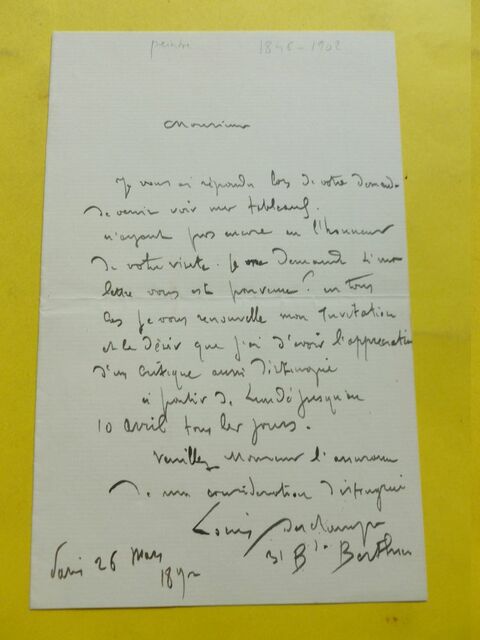 peintre 1846-1902
Monsieur
Je vous ai répondu lors de votre demande
de venir voir mes tableaux.
n'ayant pas encore eu l'honneur
de votre visite. Je me demande si ma
lettre vous est parvenue? en tous
cas je vous renouvelle mon Invitation
et le désir que j'ai d'avoir l'appreciation
d'un critique aussi distingué
à partir de Lundi jusqu'au
10 avril tous les jours.
Veuillez Monsieur l'assurance
de ma considération distinguée
Louis Deschamps
31 Bd Berthier
Paris 26 Mars